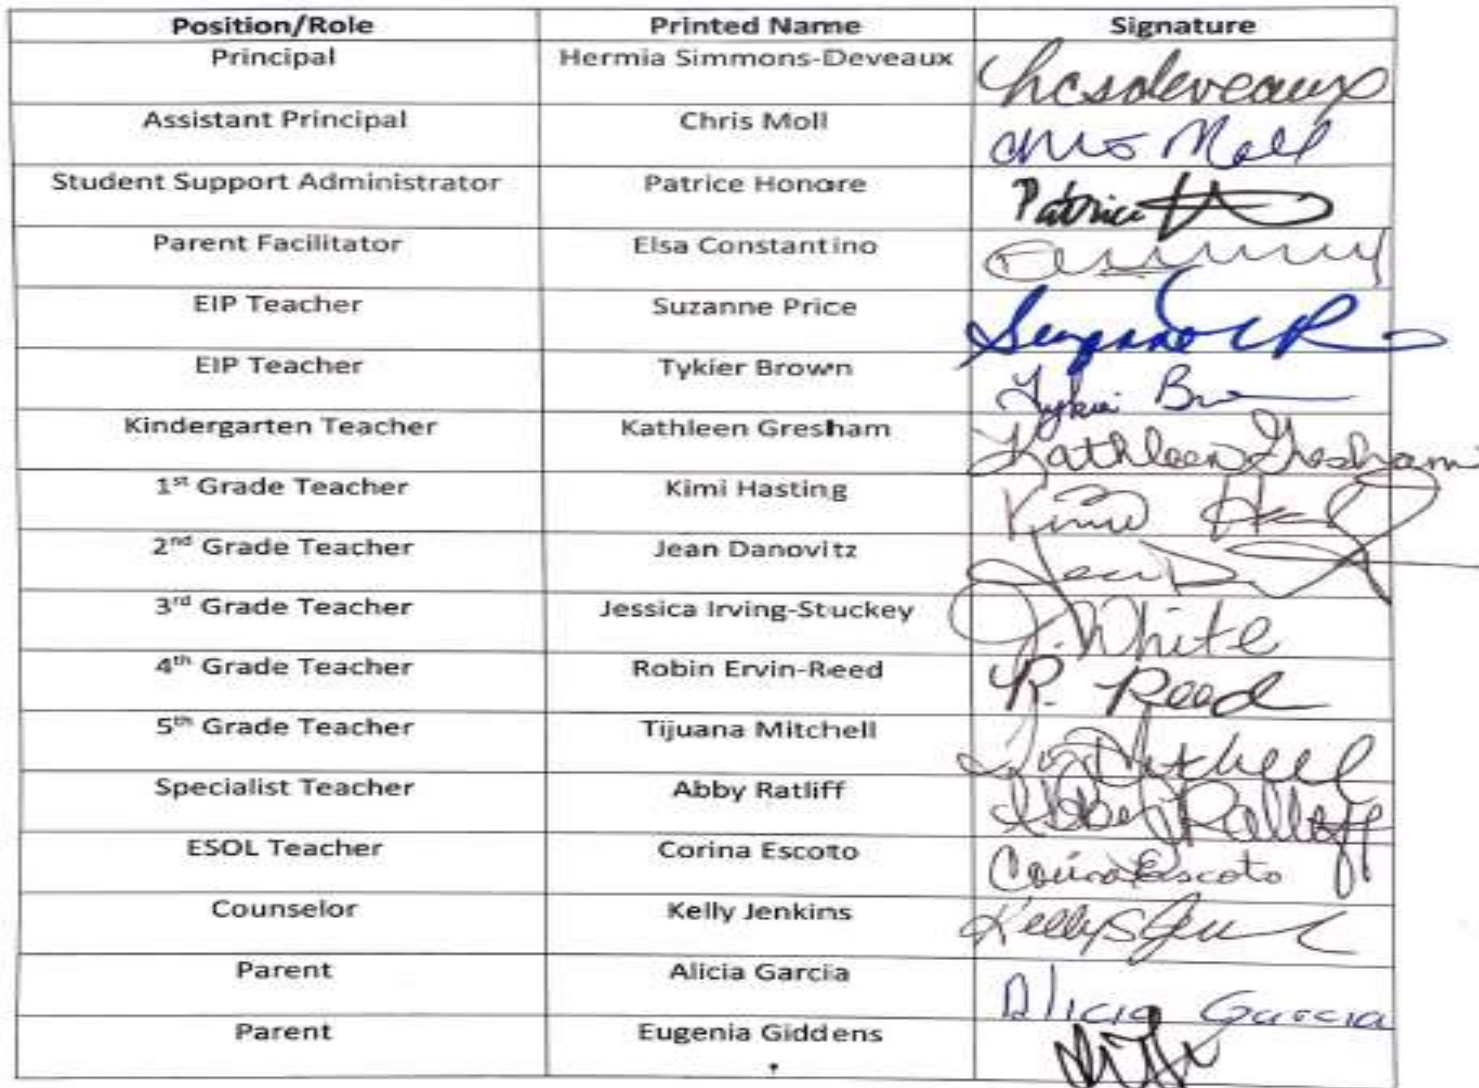 Position/Role Printed Name Signature
Principal Hermia Simmons-Deveaux hcsdeveaux
Assistant Principal Chris Moll Chris Moll
Student Support Administrator Patrice Honore Patrice
Parent Facilitator Elsa Constantino
EIP Teacher Suzanne Price Suzanne
EIP Teacher Tykier Brown Tykier
Kindergarten Teacher Kathleen Gresham Kathleen Gresham
1st Grade Teacher Kimi Hasting Kimi
2nd Grade Teacher Jean Danovitz Jean
3rd Grade Teacher Jessica Irving-Stuckey J. White
4th Grade Teacher Robin Ervin-Reed R. Reed
5th Grade Teacher Tijuana Mitchell Mitchell
Specialist Teacher Abby Ratliff Abby Ratliff
ESOL Teacher Corina Escoto Corina Escoto
Counselor Kelly Jenkins Kelly S
Parent Alicia Garcia Alicia Garcia
Parent Eugenia Giddens